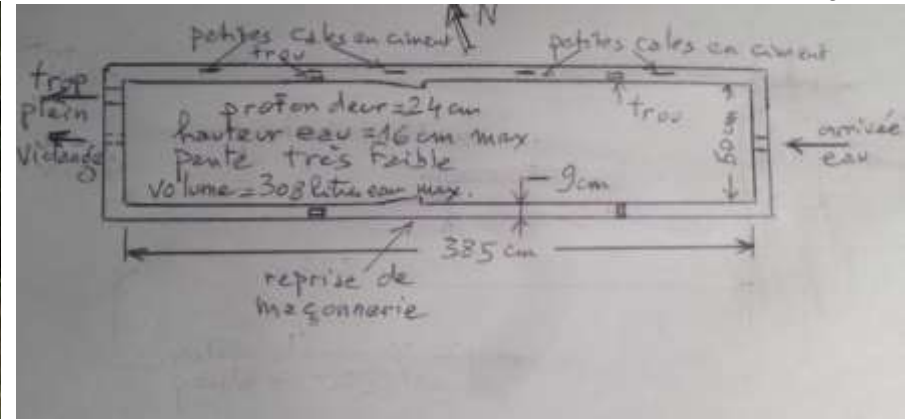 N
petites cales en ciment
petites cales en ciment
trou
trop
plein
vidange
profondeur = 24 cm
hauteur eau = 16 cm max.
pente très faible
volume = 308 litres eau max.
trou
50 cm
arrivée
eau
9 cm
385 cm
reprise de
maçonnerie